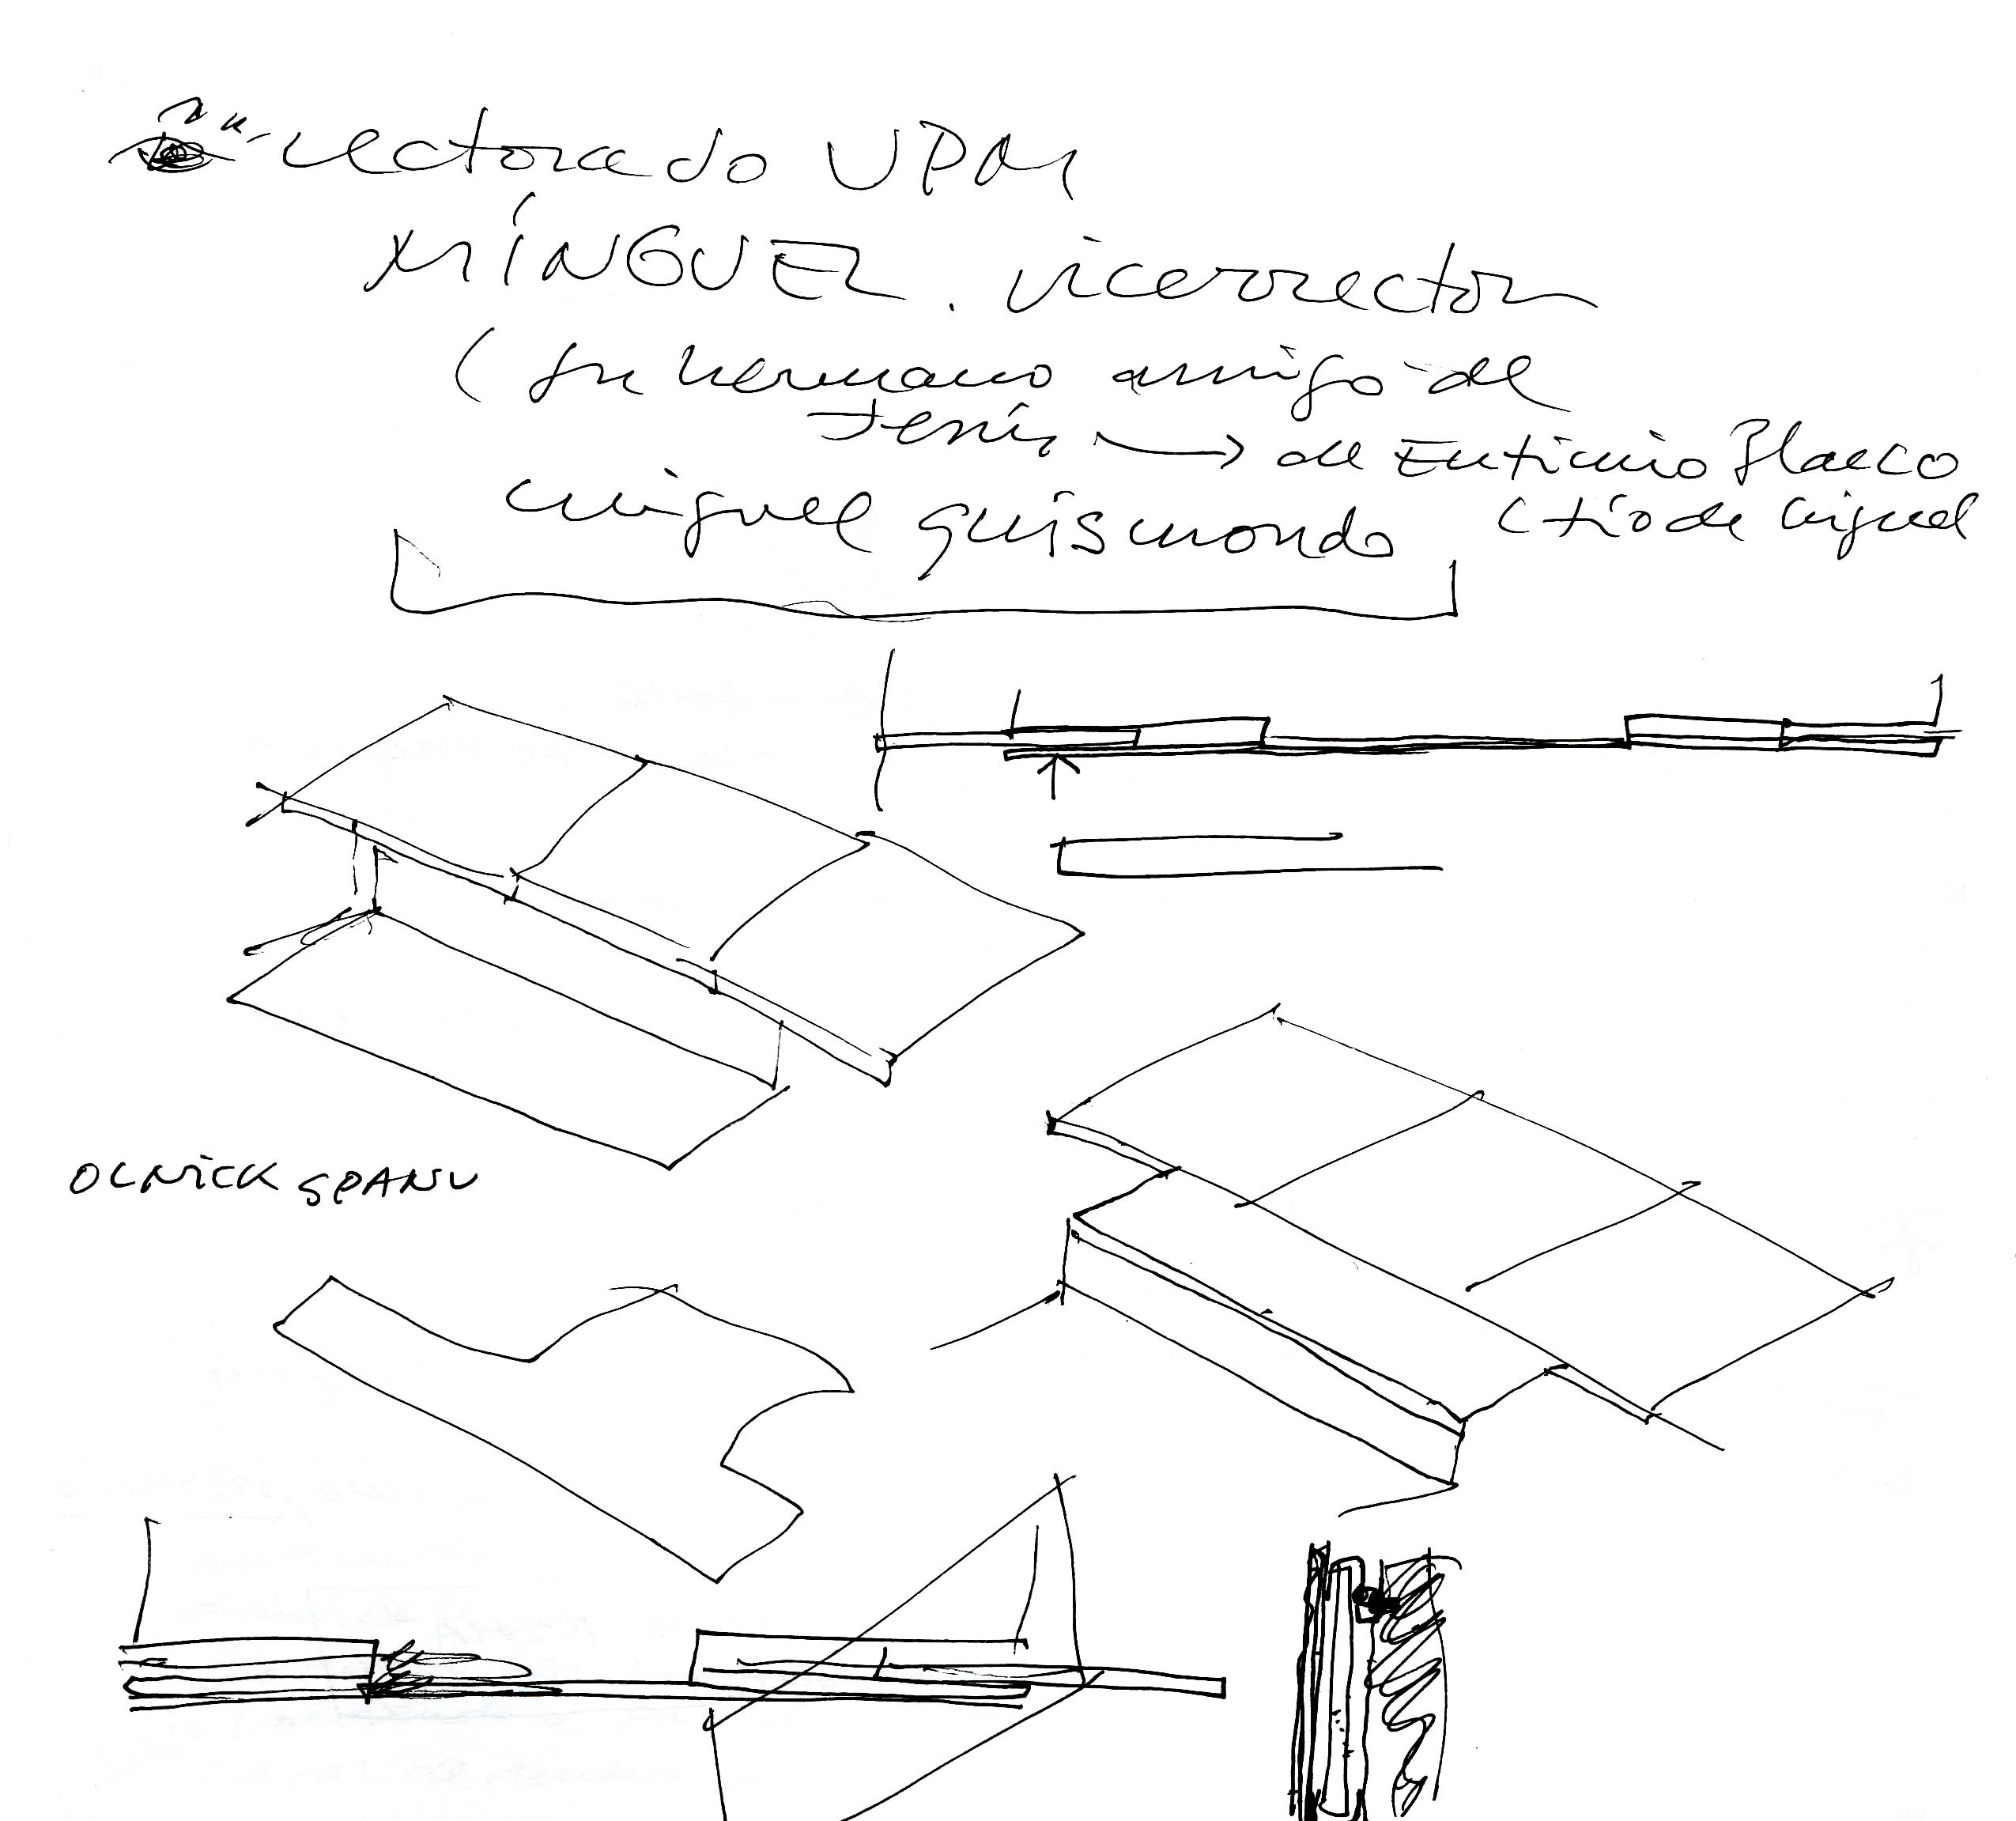 rectorado UPM
MÍNGUEZ. vicerrector
( su hermano amigo de
Jesús → de Euticiio Blasco
miguel guismondo (tío de miguel
OLNICK SPANU